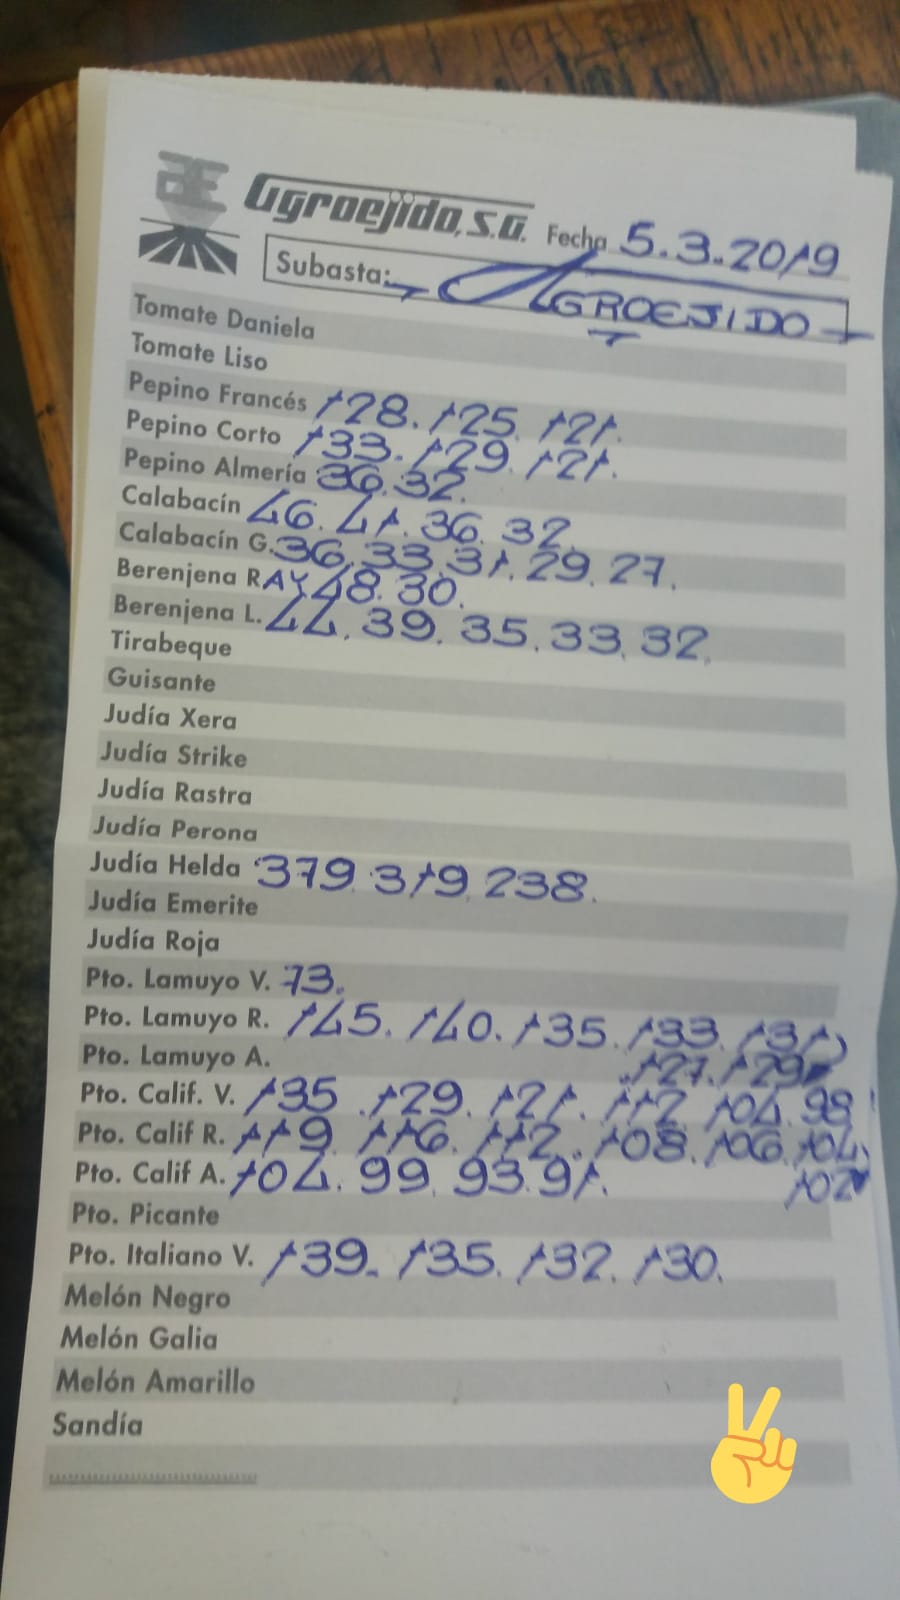 Agroejido, S.A. Fecha 5.3.2019
Subasta: AGROEJIDO
Tomate Daniela
Tomate Liso
Pepino Francés 128. 125. 121.
Pepino Corto 133. 129. 121.
Pepino Almería 36. 32.
Calabacín 46. 41. 36. 32.
Calabacín G. 36. 33. 31. 29. 27.
Berenjena RAY 48. 30.
Berenjena L. 44. 39. 35. 33. 32.
Tirabeque
Guisante
Judía Xera
Judía Strike
Judía Rastra
Judía Perona
Judía Helda 379. 319. 238.
Judía Emerite
Judía Roja
Pto. Lamuyo V. 73.
Pto. Lamuyo R. 145. 140. 135. 133. 131
Pto. Lamuyo A. 127. 129
Pto. Calif. V. 135. 129. 121. 112 104. 98
Pto. Calif R. 119. 116. 112. 108. 106. 104.
Pto. Calif A. 104. 99. 93. 91. 102
Pto. Picante
Pto. Italiano V. 139. 135. 132. 130.
Melón Negro
Melón Galia
Melón Amarillo
Sandía